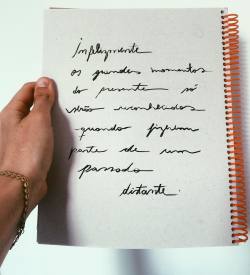 Infelizmente
os grandes momentos
do presente só
serão reconhecidos
quando fizerem
parte de um
passado
distante.